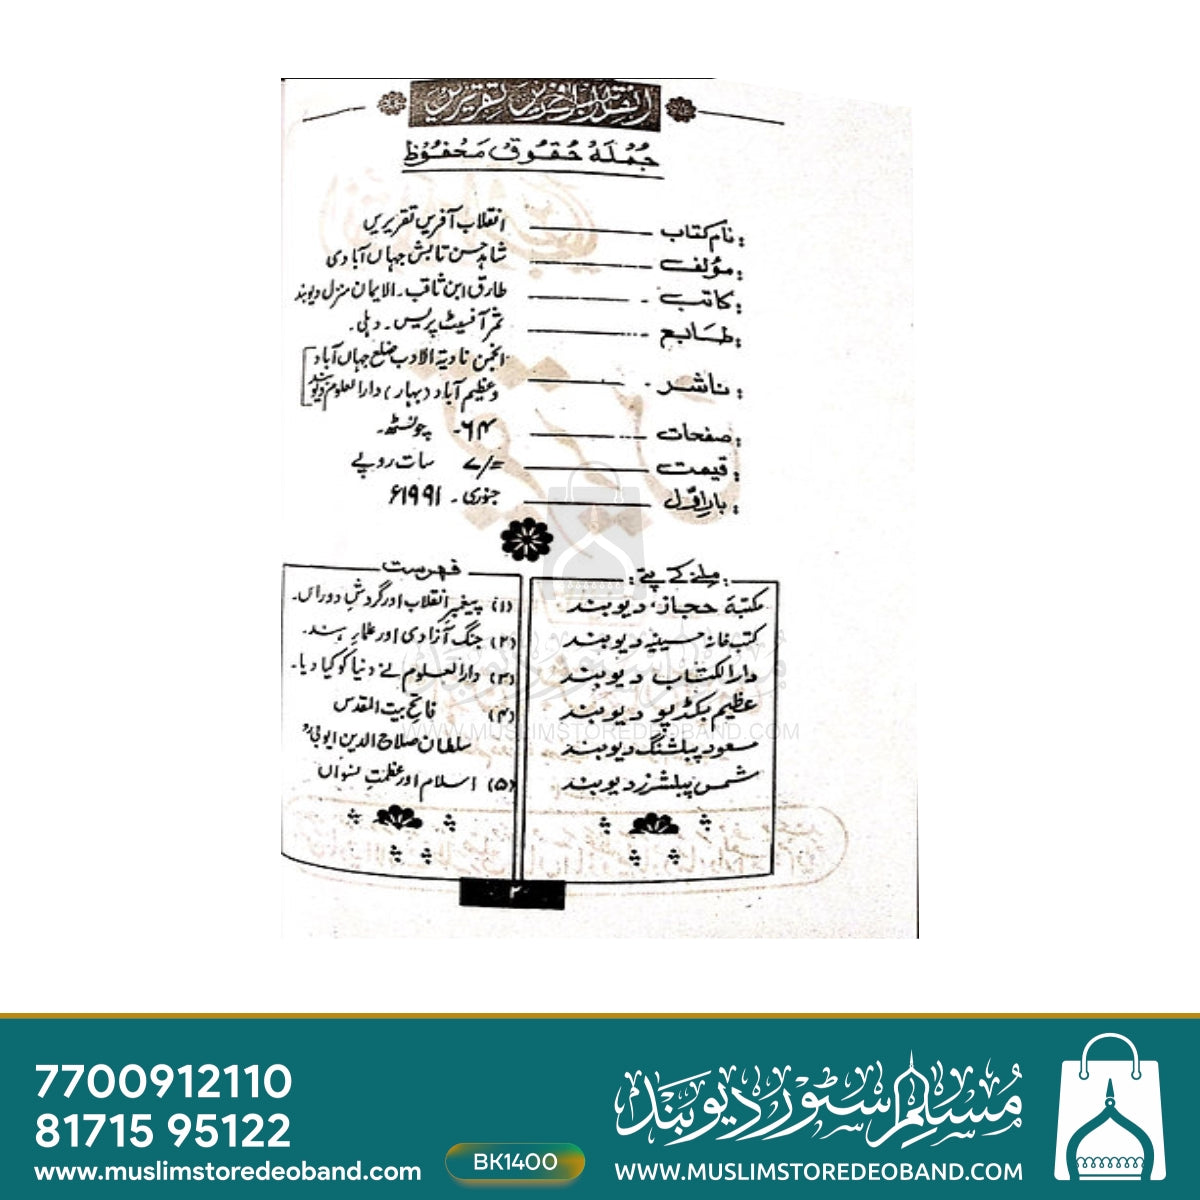 انقلاب آفریں تقریریں
جُملہ حقوق محفوظ
نام کتاب ـــــــ انقلاب آفریں تقریریں
مؤلف ـــــــ شاہد حسن تابش جہاں آبادی
کاتب ـــــــ طارق ابن ثاقب۔ الایمان منزل دیوبند
طابع ـــــــ ثمر آفسیٹ پریس۔ دہلی۔
ناشر ـــــــ انجمن نادیۃ الادب ضلع جہاں آباد
و عظیم آباد (بہار) دارالعلوم دیوبند
صفحات ـــــــ ۶۴۔ چونسٹھ۔
قیمت ـــــــ ۷/= سات روپے
بار اوّل ـــــــ جنوری۔ ۱۹۹۱ء
ملنے کے پتے:
مکتبہ حجاز، دیوبند
کتب خانہ حسینیہ دیوبند
دارالکتاب دیوبند
عظیم بکڈپو دیوبند
مسعود پبلشنگ دیوبند
شمس پبلشرز دیوبند
فہرست
(۱) پیغمبرِ انقلاب اور گردشِ دوراں۔
(۲) جنگ آزادی اور علماء ہند۔
(۳) دارالعلوم نے دنیا کو کیا دیا۔
(۴) فاتح بیت المقدس
سلطان صلاح الدین ایوبیؒ
(۵) اسلام اور عظمتِ نسواں
۲
مسلم سٹور دیوبند
WWW.MUSLIMSTOREDEOBAND.COM
7700912110
81715 95122
www.muslimstoredeoband.com
BK1400
مسلم سٹور دیوبند
WWW.MUSLIMSTOREDEOBAND.COM